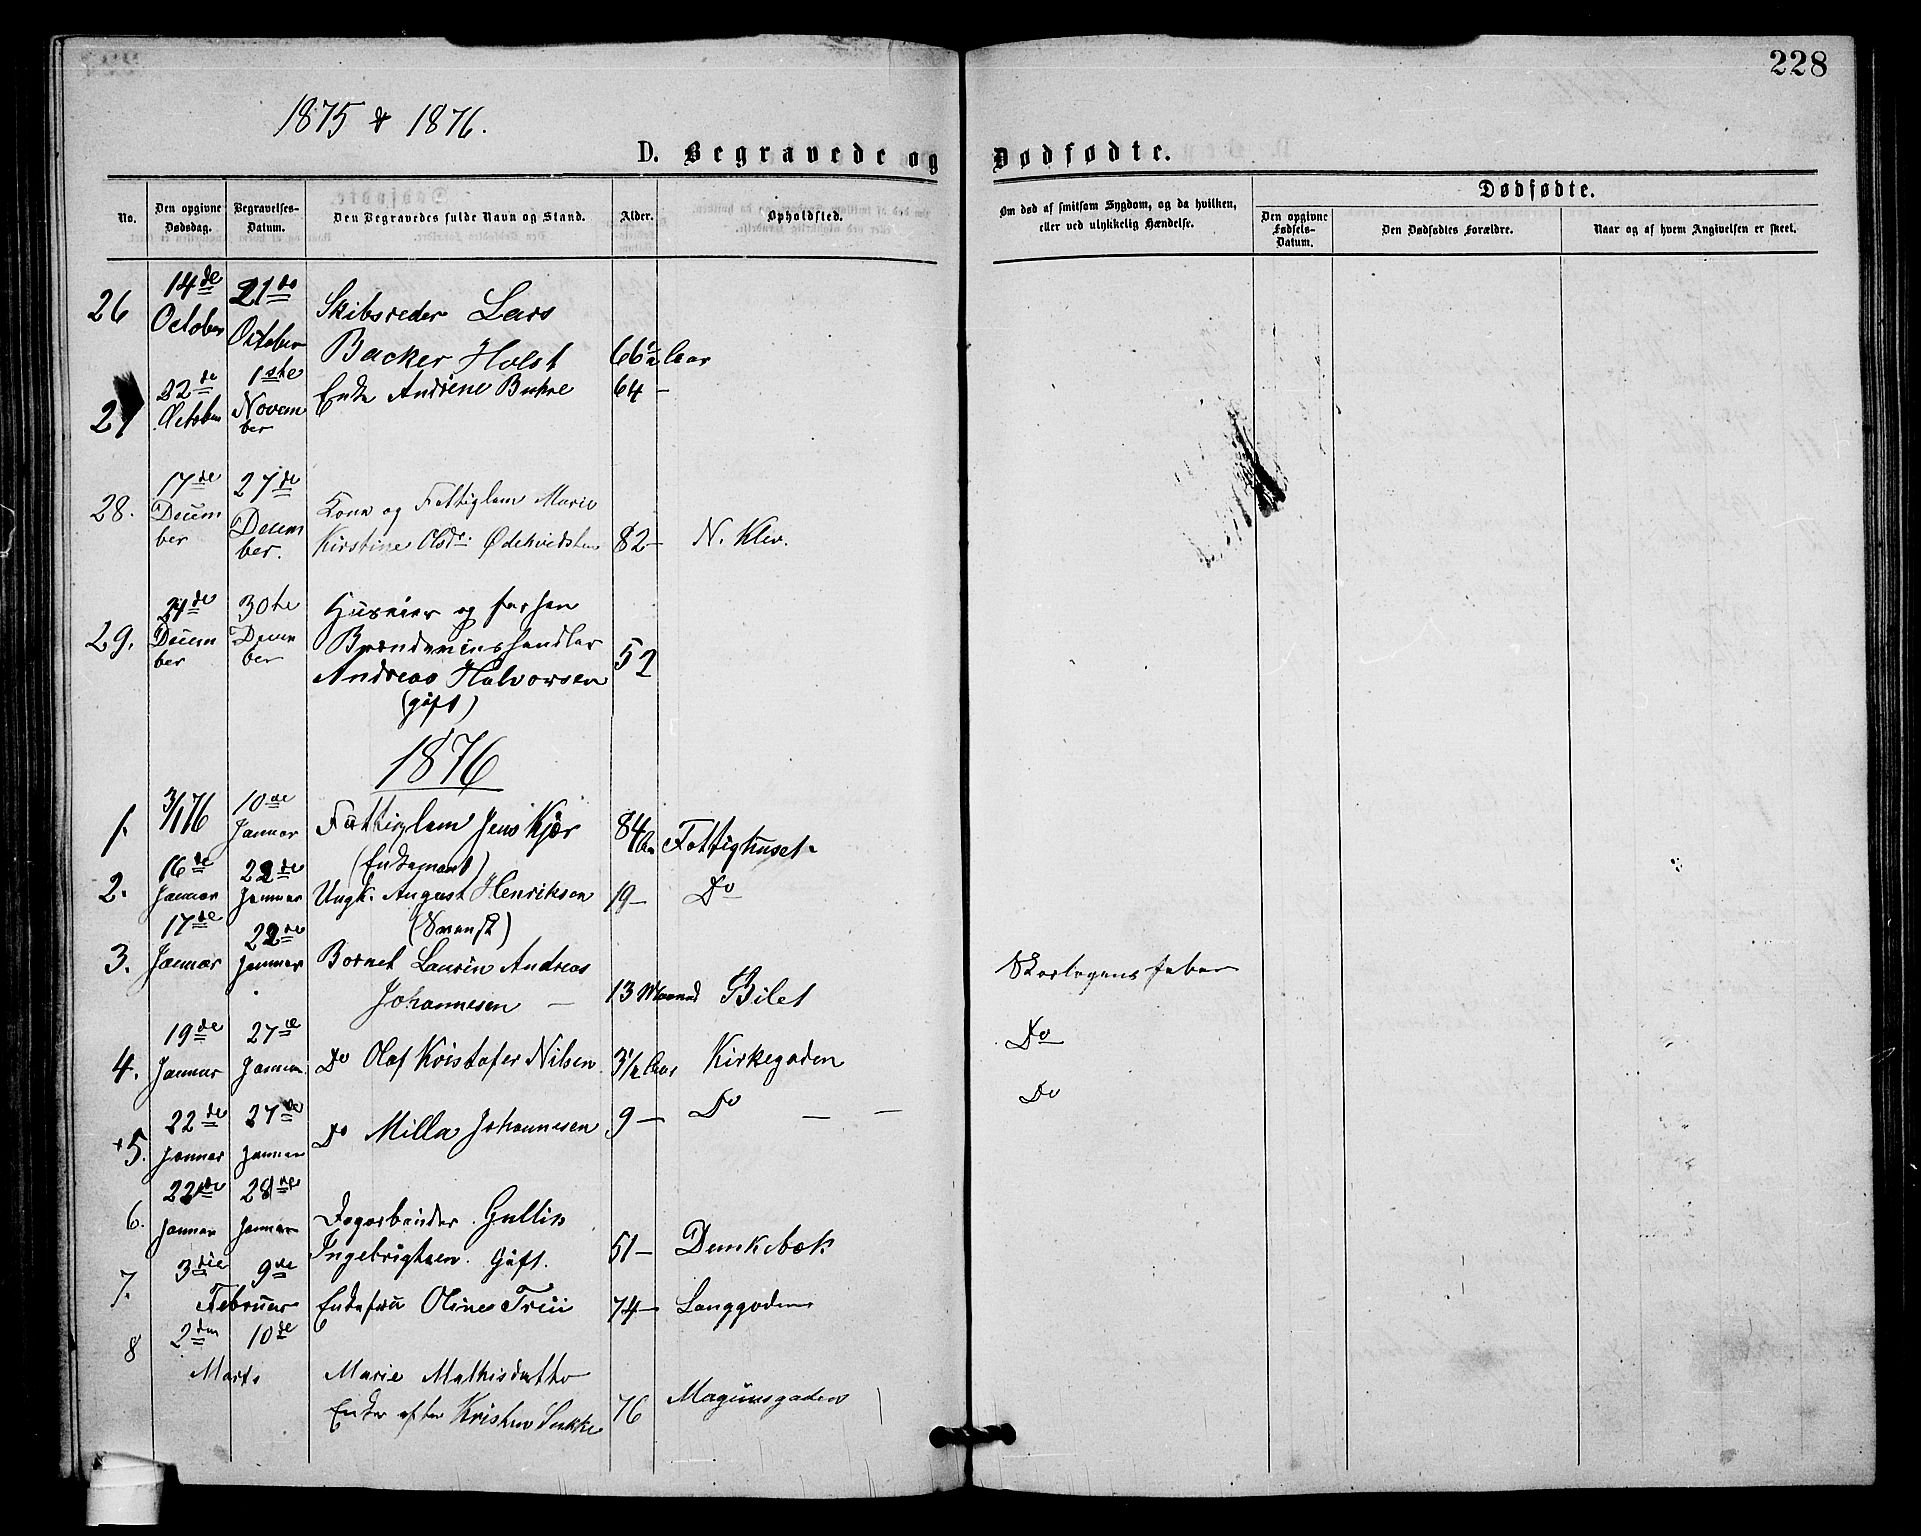 228
1875 & 1876.
D. Begravede og Dødfødte.
No.
Den opgivne Dødsdag.
Begravelses-Datum.
Den Begravedes fulde Navn og Stand.
Alder.
Opholdsted.
Om død af smitsom Sygdom, og da hvilken,
eller ved ulykkelig Hændelse.
Dødfødte.
Den opgivne Fødsels-Datum.
Den Dødfødtes Forældre.
Naar og af hvem Angivelsen er skeet.
26 14de October 21de October Skibsreder Lars
Backer Holst 66½ Aar
27 22de October 1ste November Enke Andrene 64 –
28. 17de December 27de December. Kone og Fattiglem Marie
Kirstine Olsdr: Ødekvidsten 82 – N. Klev.
29. 24de December 30te December Huseier og forhen
Brændevinshandler
Andreas Halvorsen 52
(gift)
1876
1. 3/1 76 10de Januar Fattiglem Jens Kjær 84 Aar Fattighuset
(Enkemand)
2. 16de Januar 22de Januar Ungk. August Henriksen 19 – Do
(Svensk)
3. 17de Januar 22de Januar Barnet Laurin Andreas
Johannesen – 13 Maaned Bilet Skarlagensfeber
4. 19de Januar 27de Januar Do Olaf Kristofer Nilsen 3½ Aar Kirkegaden Do
+5. 22de Januar 27de Januar Do Milla Johannesen 9 – Do – – Do
6. 22de Januar 28de Januar Dagarbeider Gullik
Ingebrigtsen. Gift. 51 –
7. 3die 9de Februar Enkefru Oline 74 – Langgaden
8 2den 10de Marts Marie Mathisdatter
Enke efter Kristen 76 Magnusgaden